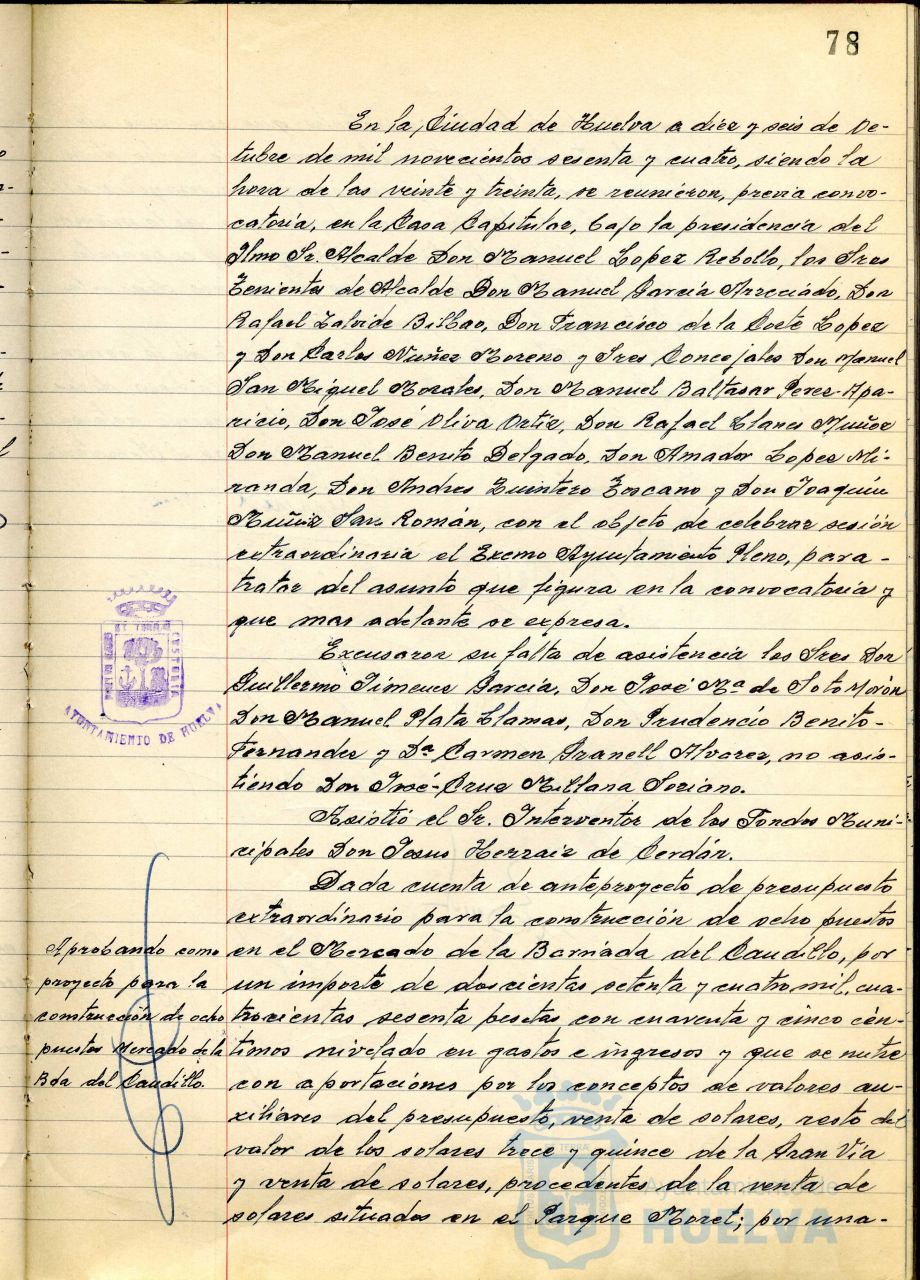 78
En la Ciudad de Huelva a diez y seis de Oc-
tubre de mil novecientos sesenta y cuatro, siendo la
hora de las veinte y treinta, se reunieron, previa convo-
catoria, en la Casa Capitular, bajo la presidencia del
Ilmo Sr. Alcalde Don Manuel Lopez Rebollo, los Sres
Tenientes de Alcalde Don Manuel Garcia Arreciado, Don
Rafael Zalvide Bilbao, Don Francisco de la Corte Lopez
y Don Carlos Nuñez Moreno y Sres Concejales Don Manuel
San Miguel Morales, Don Manuel Baltasar Perez-Apa-
ricio, Don José Oliva Ortiz, Don Rafael Llanes Muñoz
Don Manuel Benito Delgado, Don Amador Lopez Mi-
randa, Don Andres Quintero Toscano y Don Joaquin
Muñiz San Román, con el objeto de celebrar sesión
extraordinaria el Excmo Ayuntamiento Pleno, para-
tratar del asunto que figura en la convocatoria y
que mas adelante se expresa.
Excusaron su falta de asistencia los Sres Don
Guillermo Jimenez Garcia, Don José Mª de Soto Morón
Don Manuel Plata Llamas, Don Prudencio Benito-
Fernandez y Dª Carmen Granell Alvarez, no asis-
tiendo Don José-Cruz Millana Soriano.
Asistió el Sr. Interventor de los Fondos Muni-
cipales Don Jesus Herraiz de Cerdán.
Dada cuenta de anteproyecto de presupuesto
extraordinario para la construcción de ocho puestos
en el Mercado de la Barriada del Caudillo, por
un importe de doscientas setenta y cuatro mil, cua-
trocientas sesenta pesetas con cuarenta y cinco cén-
timos nivelado en gastos e ingresos y que se nutre
con aportaciones por los conceptos de valores au-
xiliares del presupuesto, venta de solares, resto del
valor de los solares trece y quince de la Gran Via
y venta de solares, procedentes de la venta de
solares situados en el Parque Moret; por una-
Aprobando como
proyecto para la
construcción de ocho
puestos Mercado de la
Bda del Caudillo.
AYUNTAMIENTO DE HUELVA
Ayuntamiento de
HUELVA